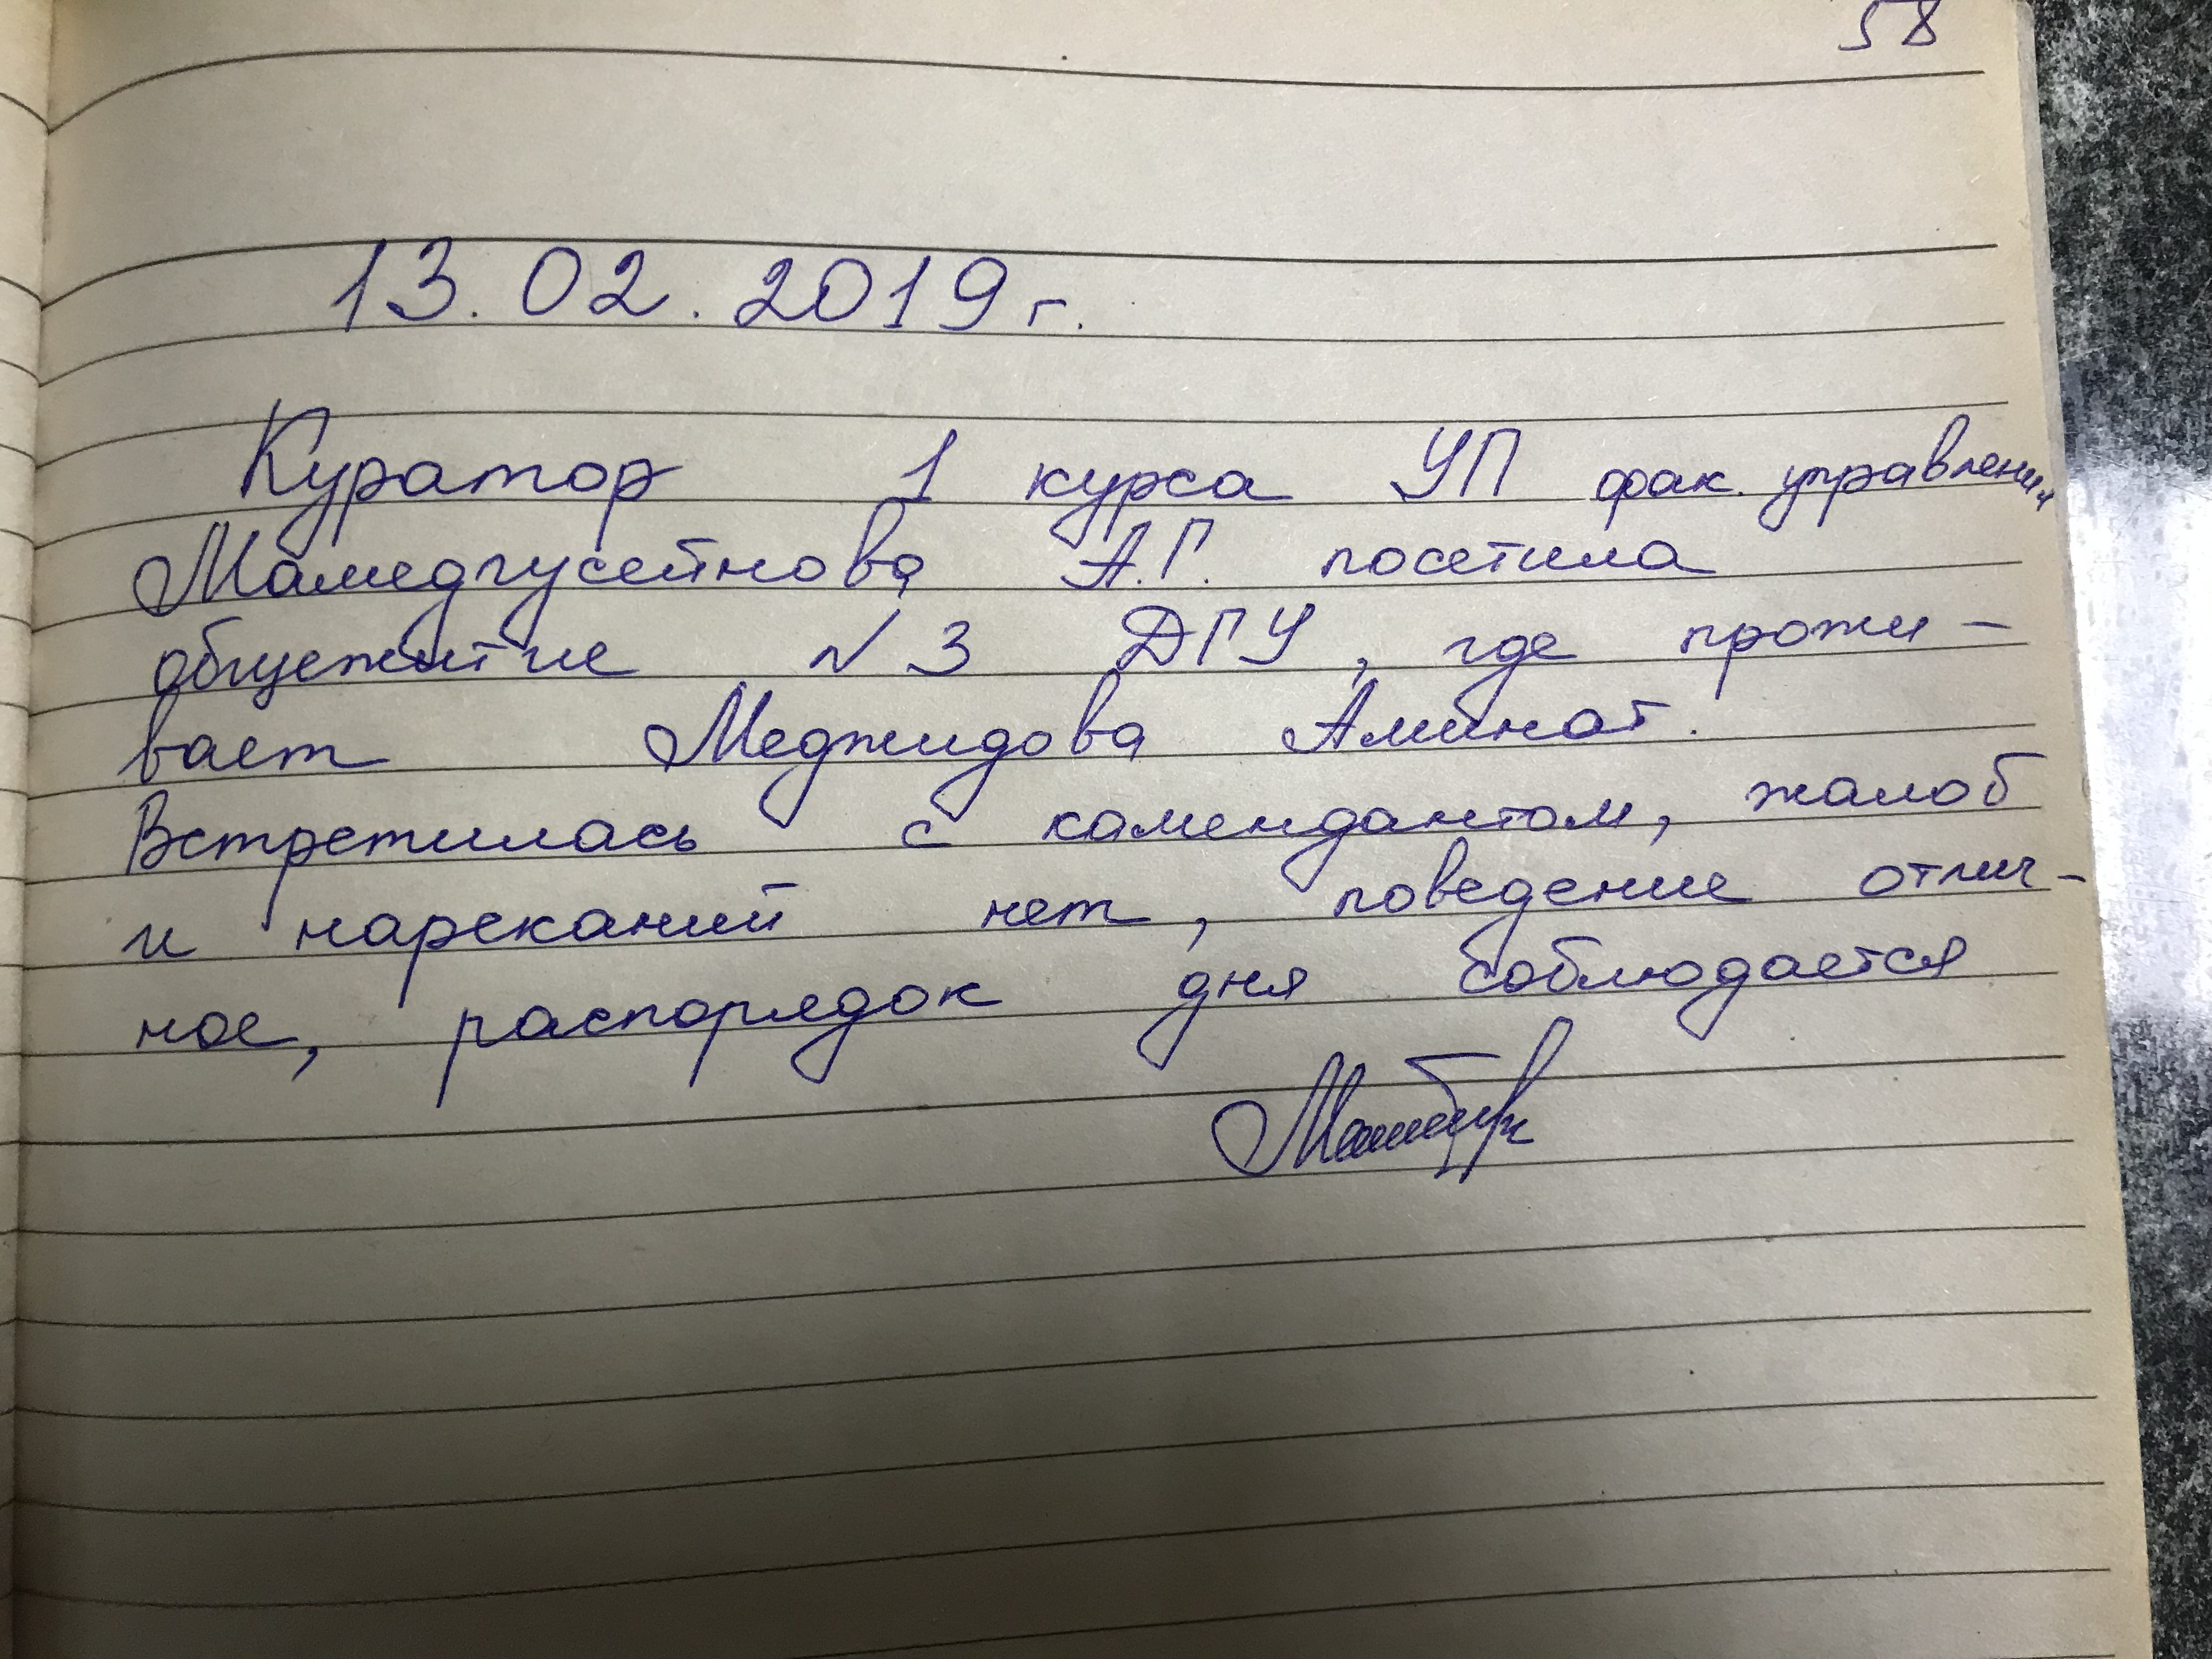 58
13.02.2019 г.
Куратор 1 курса УП фак. управления
Мамедгусейнова А.Г. посетила
общежитие №3 ДГУ, где прожи-
вает Меджидова Аминат.
Встретилась с камендантом, жалоб
и нареканий нет, поведение отлич-
ное, распорядок дня соблюдается